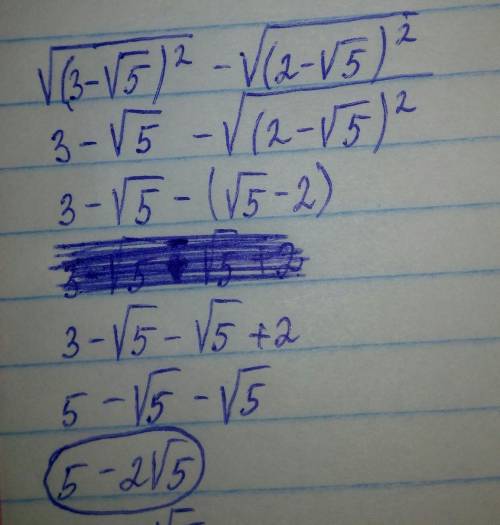 √(3-√5)² - √(2-√5)²
3-√5 - √(2-√5)²
3-√5 - (√5-2)
3-√5-√5+2
5-√5-√5
5-2√5